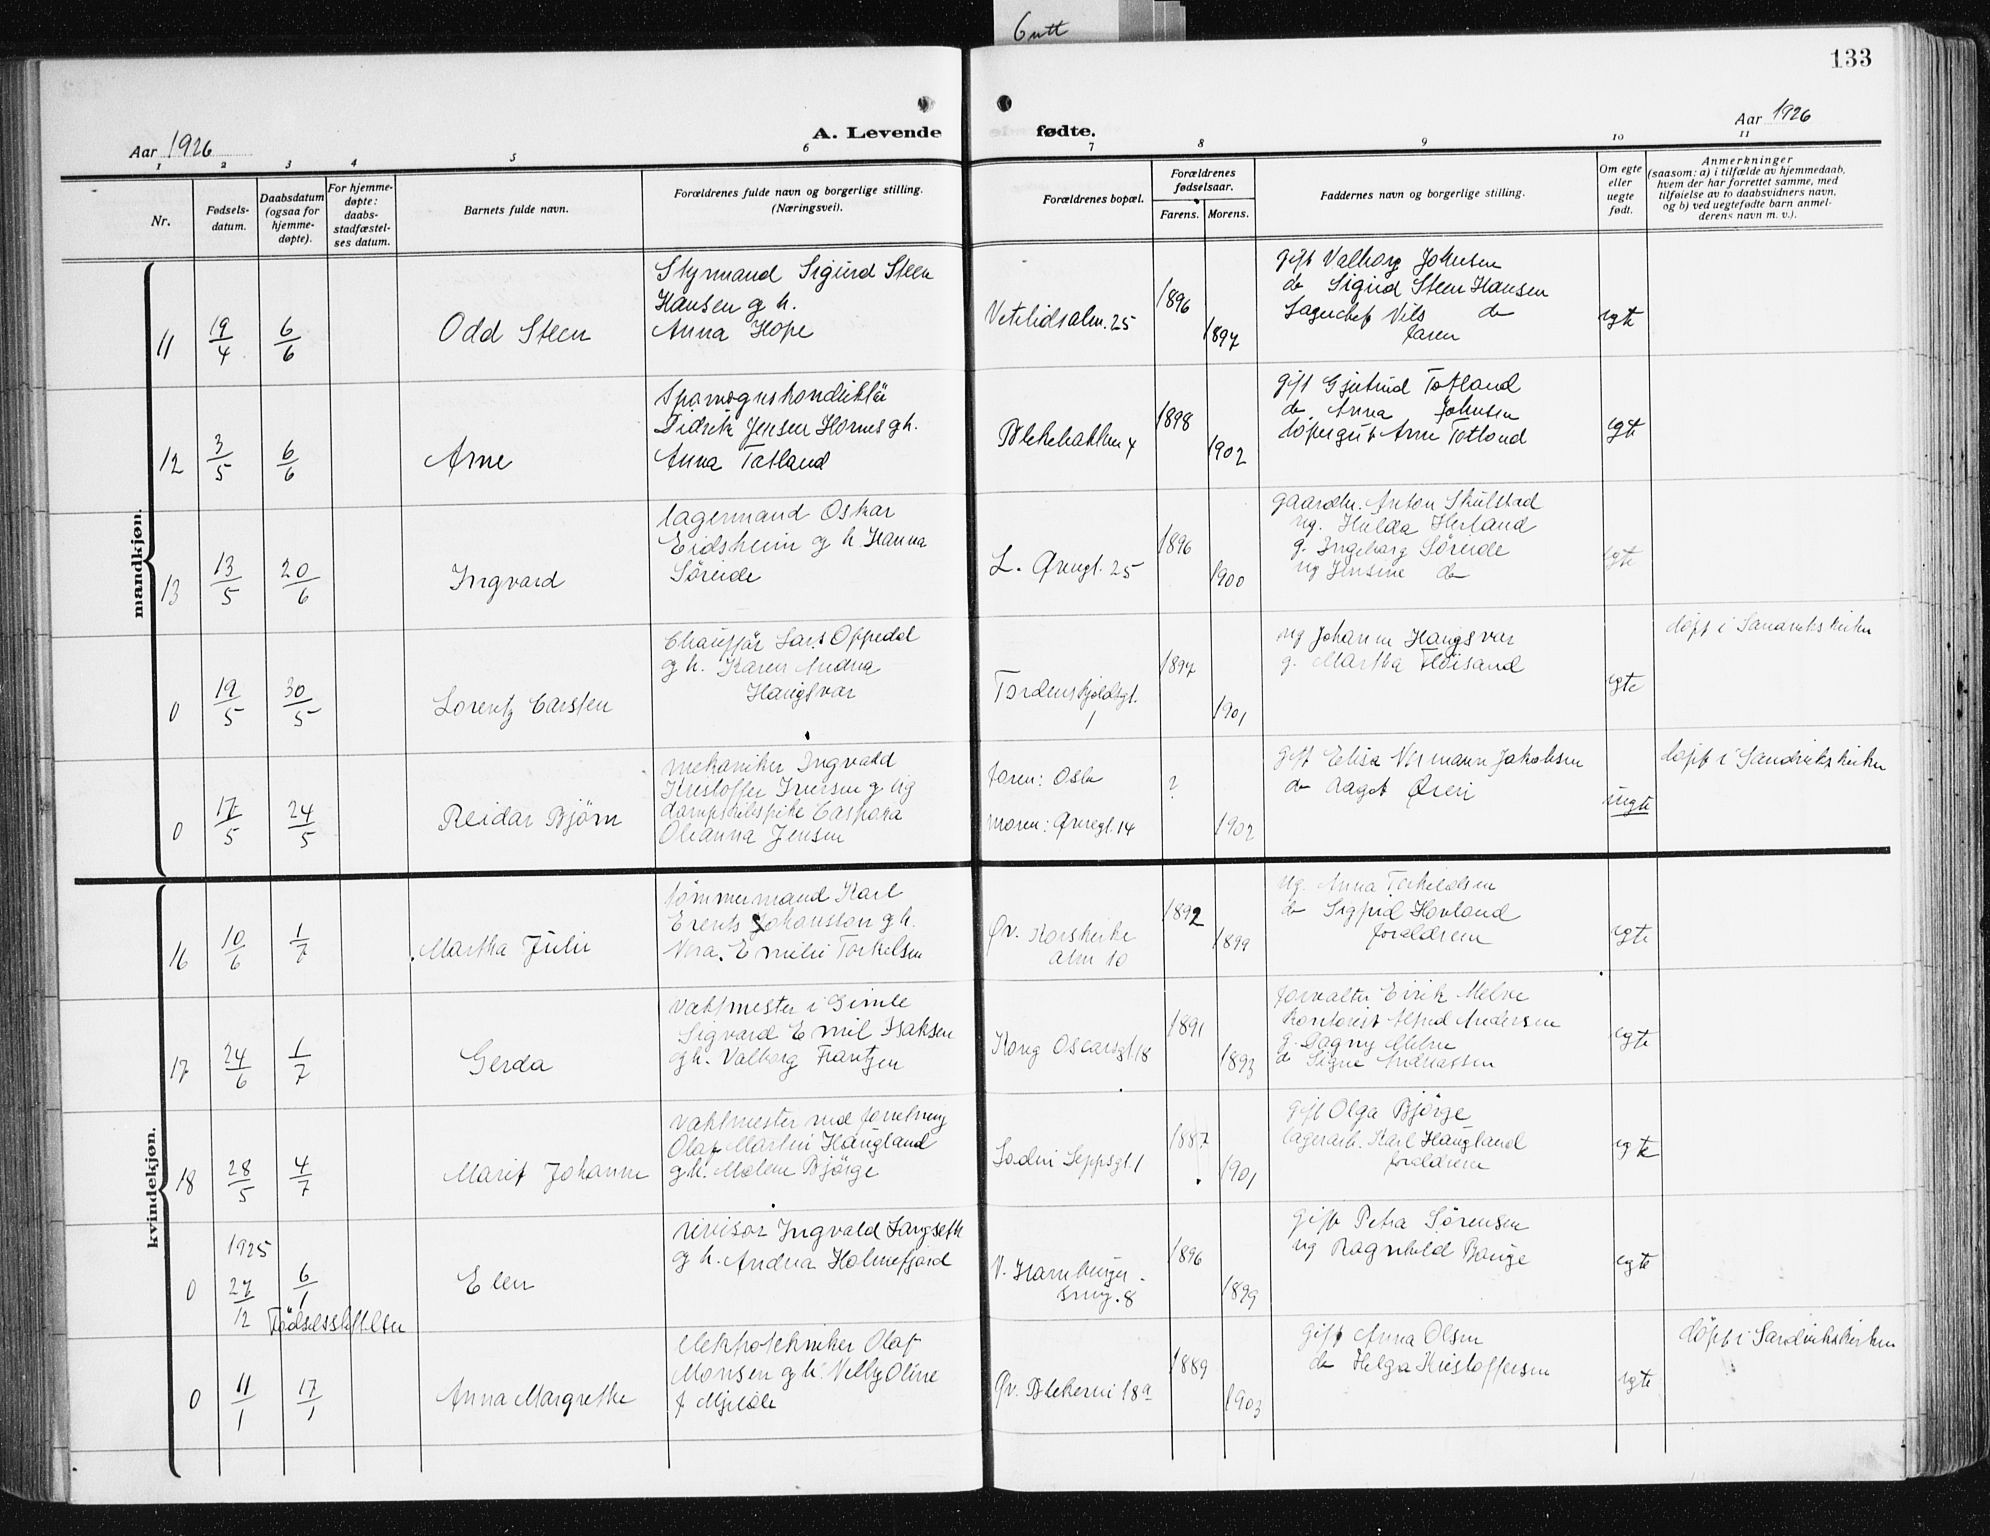 Gutt
133
Aar 1926
A. Levende fødte.
Aar 1926
1 2 3 4 5 6 7 8 9 10 11
Nr.
Fødsels-
datum.
Daabsdatum
(ogsaa for
hjemme-
døpte).
For hjemme-
døpte:
daabs-
stadfæstel-
ses datum.
Barnets fulde navn.
Forældrenes fulde navn og borgerlige stilling.
(Næringsvei).
Forældrenes bopæl.
Forældrenes
fødselsaar.
Farens. Morens.
Faddernes navn og borgerlige stilling.
Om egte
eller
uegte
født.
Anmerkninger
(saasom: a) i tilfælde av hjemmedaab,
hvem der har forrettet samme, med
tilføielse av to daabsvidners navn,
og b) ved uegtefødte barn anmel-
derens navn m. v.).
mandkjøn.
11
19/4
6/6
Odd Steen
Styrmand Sigurd Steen
Hansen g h.
Anna Hope
Vetrlidsalm. 25
1896
1897
gift Valborg Johnsen
do Sigrid Steen Hansen
Lagerchef Nils do
faren
egte
12
3/5
6/6
Arne
Didrik Jensen Hornes gh.
Anna Totland
Blekebakken 4
1898
1902
gift Gjertrud Totland
do. Anna Johnsen
Arne Totland
egte
13
13/5
20/6
Ingvard
lagermand Oskar
Eidsheim g h Hanna
Søreide
L. Øvregt. 25
1896
1900
gaardbr. Anton Skulstad
ug. Hulda Herland
g. Ingeborg Søreide
ug Jensine do
egte
0
19/5
30/5
Lorentz Carsten
Chauffør Lars Oppedal
g h. Karen Andrea
Haugsvar
Tordenskjoldsgt.
1
1897
1901
ug Johanne Haugsvar
g. Martha Fløisand
egte
døpt i Sandvikskirken
0
17/5
24/5
Reidar Bjørn
mekaniker Ingvald
Kristoffer Iversen g ug
Caspara
Olianna Jensen
faren: Oslo
moren: Øvregt. 14
?
1902
gift Elisa Normann Jakobsen
do Aagot Øren
uegte
døpt i Sandvikskirken
kvindekjøn.
16
10/6
1/7
Martha Julie
tømmermand Karl
Johansson g h.
Nora Emilie Torkelsen
Øv. Korskirke
alm 10
1892
1899
ug. Anna Torkildsen
do Sigfrid Hovland
forældrene
egte
17
24/6
1/7
Gerda
Vaktmester i Gimle
Sigvard Emil Isaksen
g h. Valborg Frantzen
Kong Oscarsgt. 18
1891
1893
forvalter Eirik Melve
kontorist Alfred Andersen
g. Dagny Melve
do Signe Andreassen
egte
18
28/5
4/7
Marit Johanne
vaktmester ved forretning
Olaf Martin Haugland
g h. Malene Bjørge
Ladvi Seppsgt. 1
1887
1901
gift Olga Bjørge
lagerarb. Karl Haugland
forældrene
egte
0
1925
27/12
6/1
Fødselsstiftelsen
Elen
revisor Ingvald Langseth
g h. Andrea Holmefjord
V. Hamburger-
smug. 8
1896
1899
gift Petra Sørensen
ug Ragnhild Bauge
egte
0
11/1
17/1
Anna Margrethe
elektrotekniker Olaf
Monsen g h. Nelly Oline
f Mjelde
Øv. Blekevei 18a
1889
1903
gift Anna Olsen
do Helga Kristoffersen
egte
døpt i Sandvikskirken